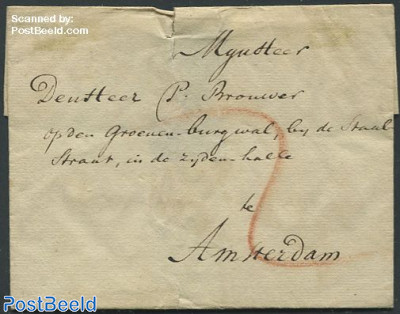 Scanned by:
PostBeeld.com
Mynheer
Den Heer P. Brouwer
op den Groenen-burgwal, by de Staal
Straat, in de zyden-halle
te
Amsterdam
2
PostBeeld